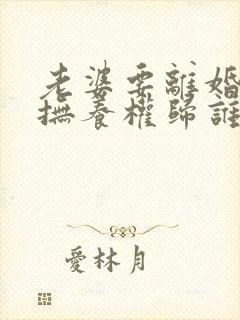 老婆要離婚
撫養權歸誰
愛林月